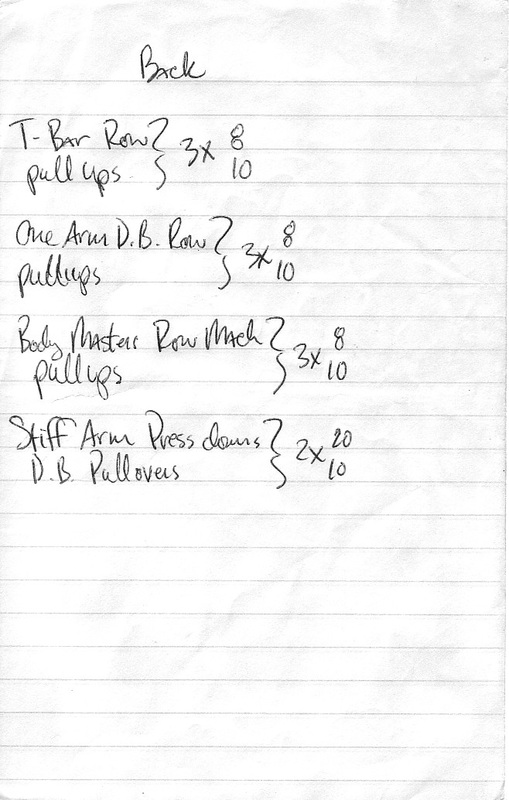 Back
T-Bar Row } 3x 8
pull ups 10
One Arm D.B. Row } 3x 8
pullups 10
Body Masters Row Mach } 3x 8
pullups 10
Stiff Arm Press downs } 2x 20
D.B. Pullovers 10